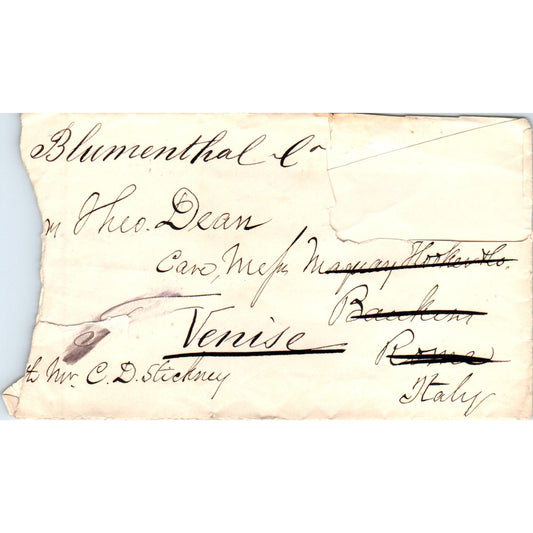 Blumenthal & Co
m Theo. Dean
Care, Mess Maquay Hooker & Co.
Bankers
Venise
Roma
th Mr. C. D. Stickney
Italy